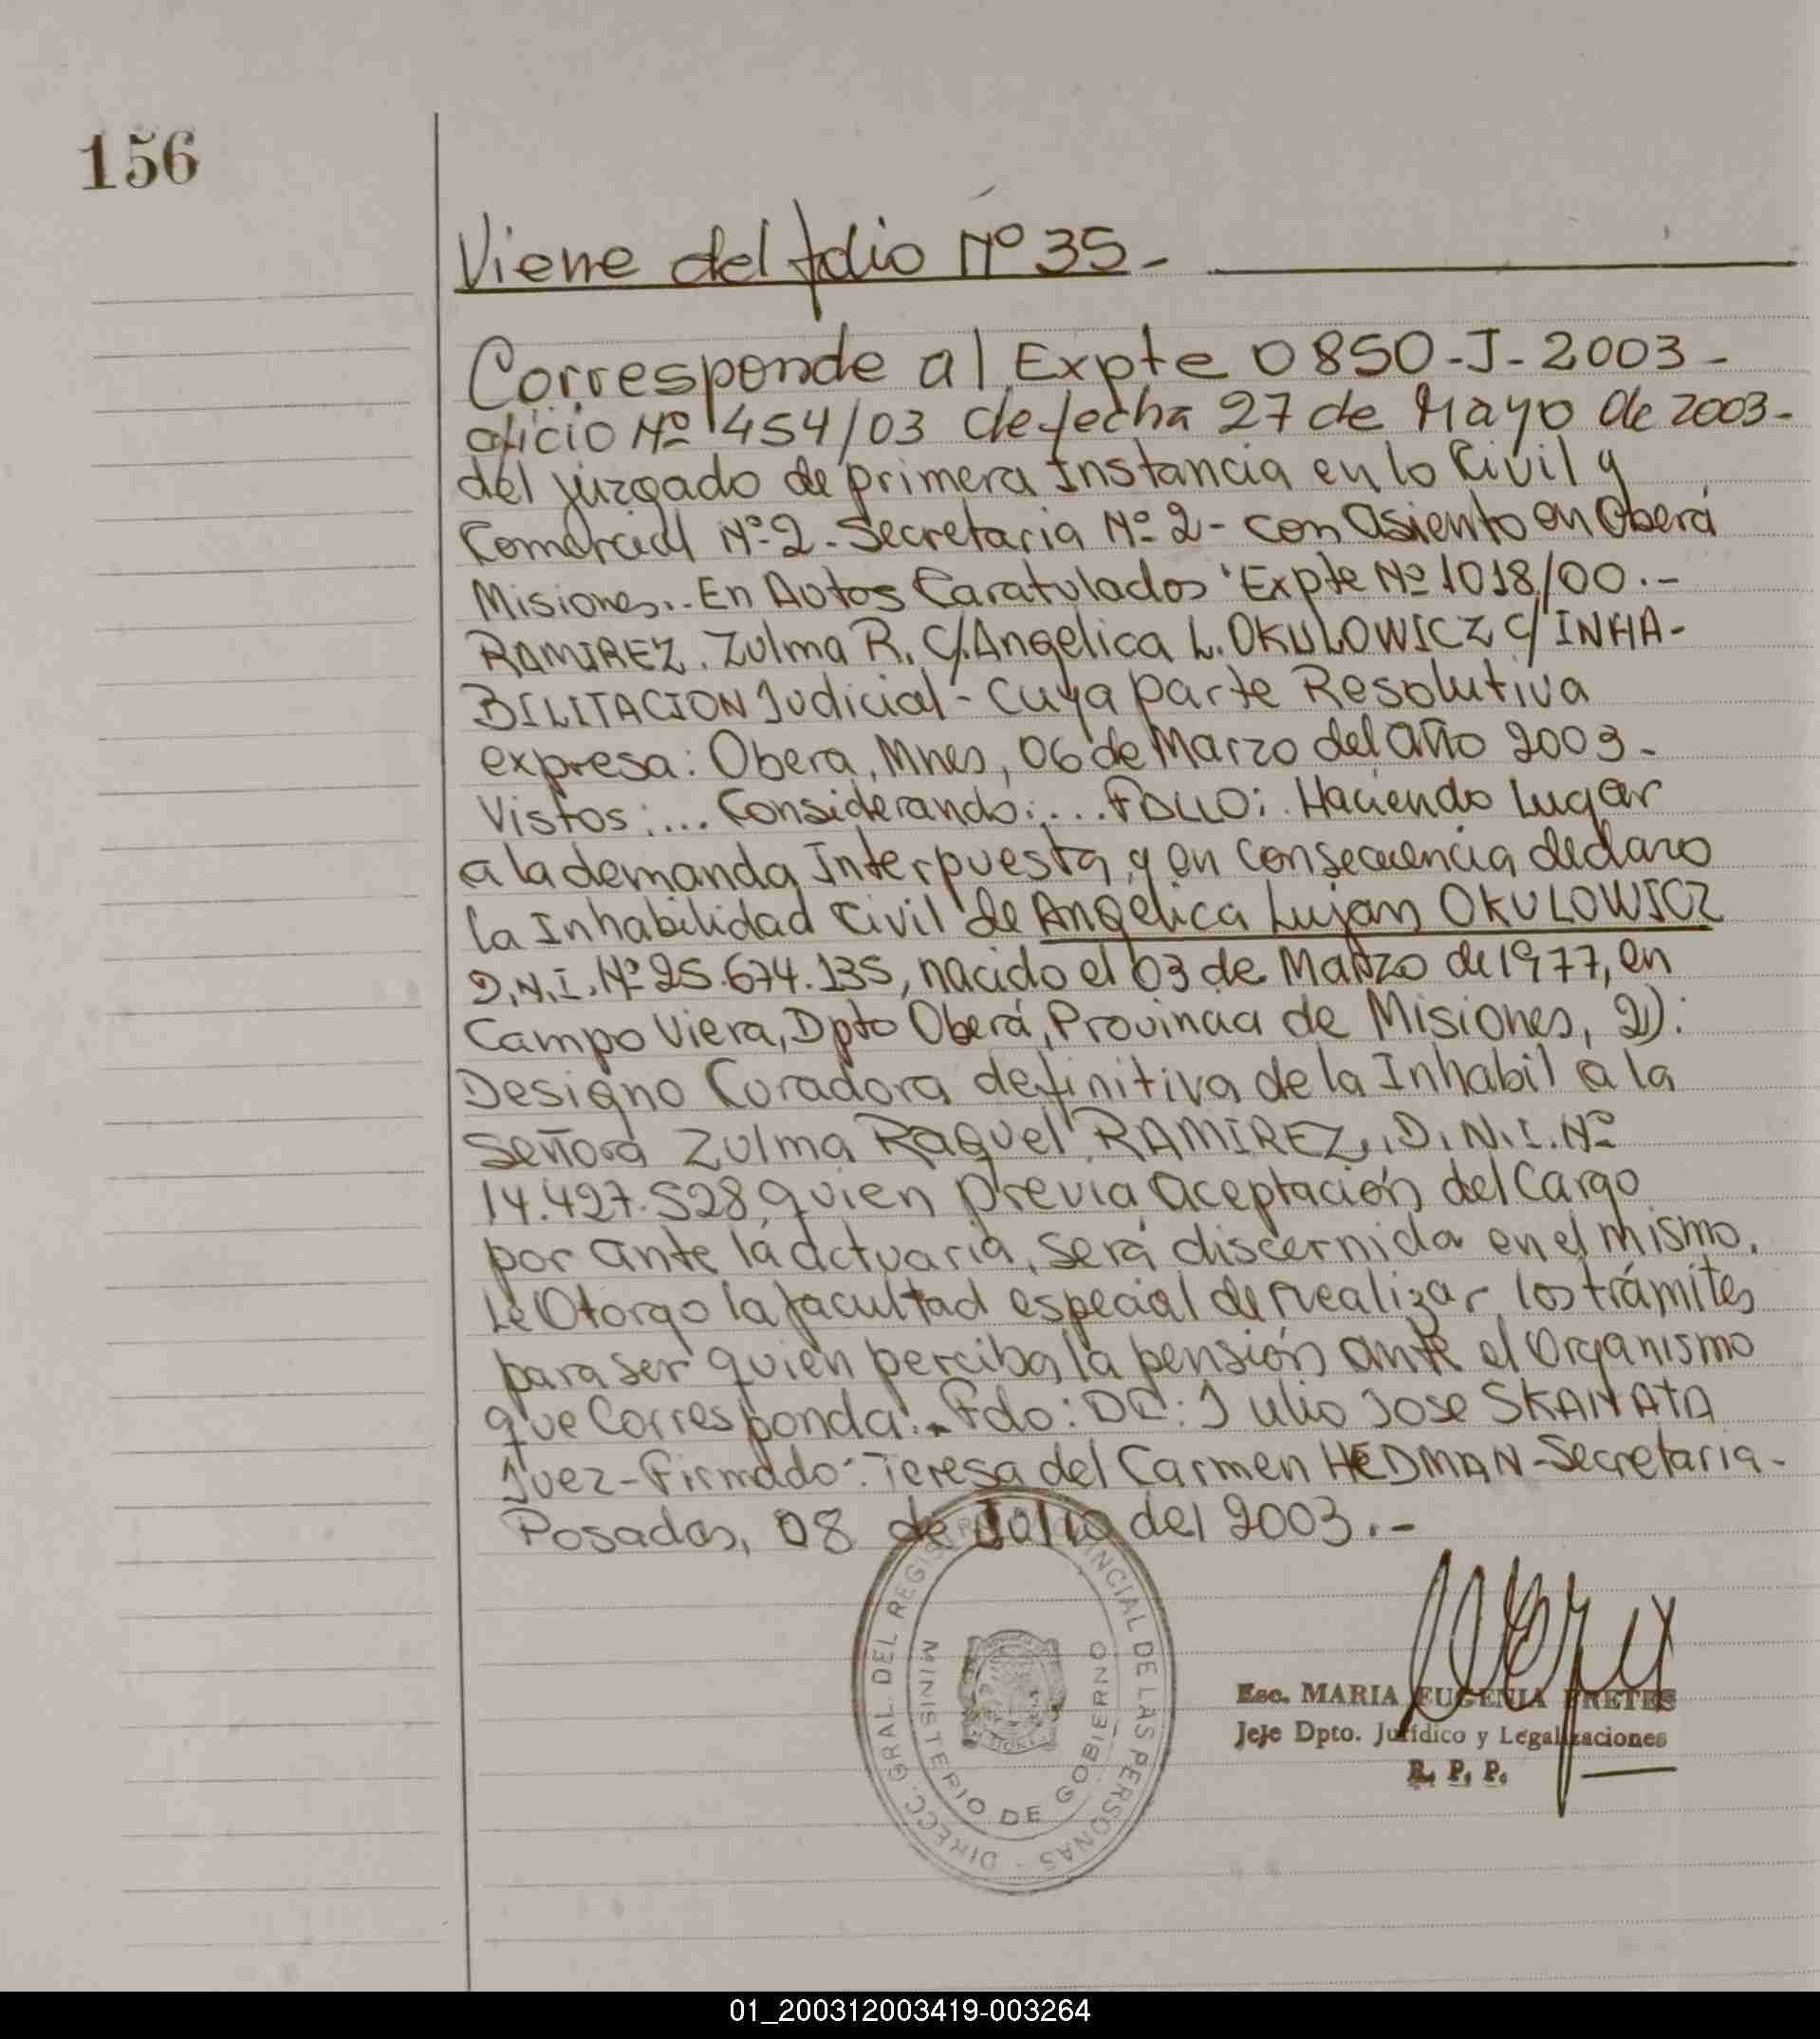 156
Viene del folio Nº 35-
Corresponde al Expte 0850-J-2003-
oficio Nº 454/03 de fecha 27 de Mayo de 2003-
del juzgado de primera Instancia en lo Civil y
Comercial Nº 2. Secretaria Nº 2- con asiento en Oberá
Misiones.- En Autos Caratulados "Expte Nº 1018/00.-
RAMIREZ, Zulma R. C/. Angelica L. OKULOWICZ C/ INHA-
BILITACION Judicial - Cuya parte Resolutiva
expresa: Obera, Mnes, 06 de Marzo del año 2003-
Vistos:... Considerando:.... FALLO: Haciendo Lugar
a la demanda Interpuesta, y en consecuencia declaro
la Inhabilidad Civil de Angelica Lujan OKULOWICZ
D.N.I. Nº 25.674.135, nacido el 03 de Marzo de 1977, en
Campo Viera, Dpto Oberá, Provincia de Misiones, 2):
Designo Curadora definitiva de la Inhabil a la
Señora Zulma Raquel RAMIREZ, D.N.I. Nº
14.427.528, quien previa aceptación del Cargo
por ante la actuaria, será discernida en el mismo.
Le Otorgo la facultad especial de realizar los trámites
para ser quien perciba la pensión ante el Organismo
que Corresponda.- Fdo: DR: Julio Jose SKANATA
Juez- Firmado: Teresa del Carmen HEDMAN-Secretaria-
Posadas, 08 de Julio del 2003.-
DIRECC. GRAL. DEL REGISTRO PROVINCIAL DE LAS PERSONAS -
MINISTERIO DE GOBIERNO
Esc. MARIA EUGENIA FRETES
Jefe Dpto. Jurídico y Legalizaciones
R. P. P.
01_200312003419-003264